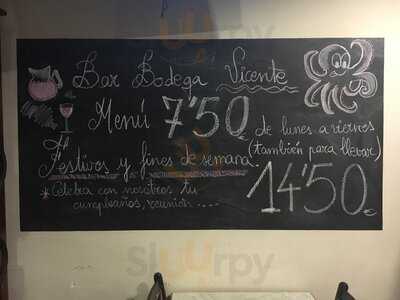 Bar Bodega Vicente
Menú 7'50€ de lunes a viernes
(también para llevar)
Festivos y fines de semana 14'50€
*Celebra con nosotros tu
cumpleaños, reunión ....
Sluurpy